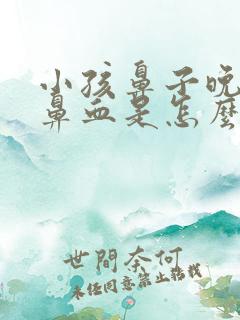 小孩鼻子晚
鼻血是怎麼
世間奈何
未经同意禁止转载